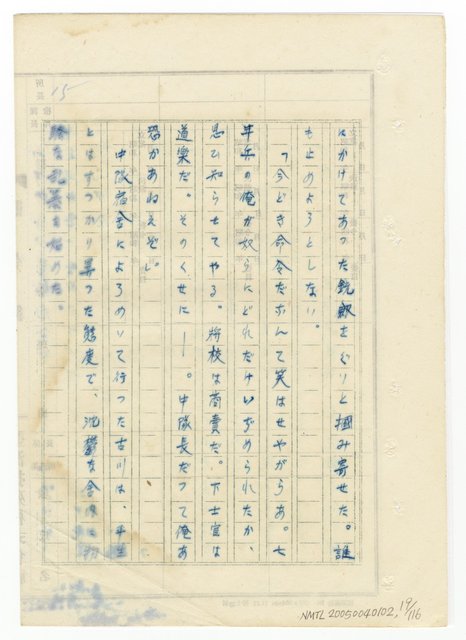 にかけてあった銃劔をぐいと掴み寄せた。誰
も止めようとしない。
「今どき命令だなんて笑はせやがらあ。七
年兵の俺が奴らにどれだけいぢめられたか、
思ひ知らせてやる。將校は商賣だ。下士官は
道樂だ。そのくせに——。中隊長だって俺あ
恐かあねえぞ」。
中隊宿舎によろめいて行った古川は、平生
とはすつかり異つた態度で、沈鬱な
な乱暴を始めた。
15
所長
NMTL 20050040102, 19/116